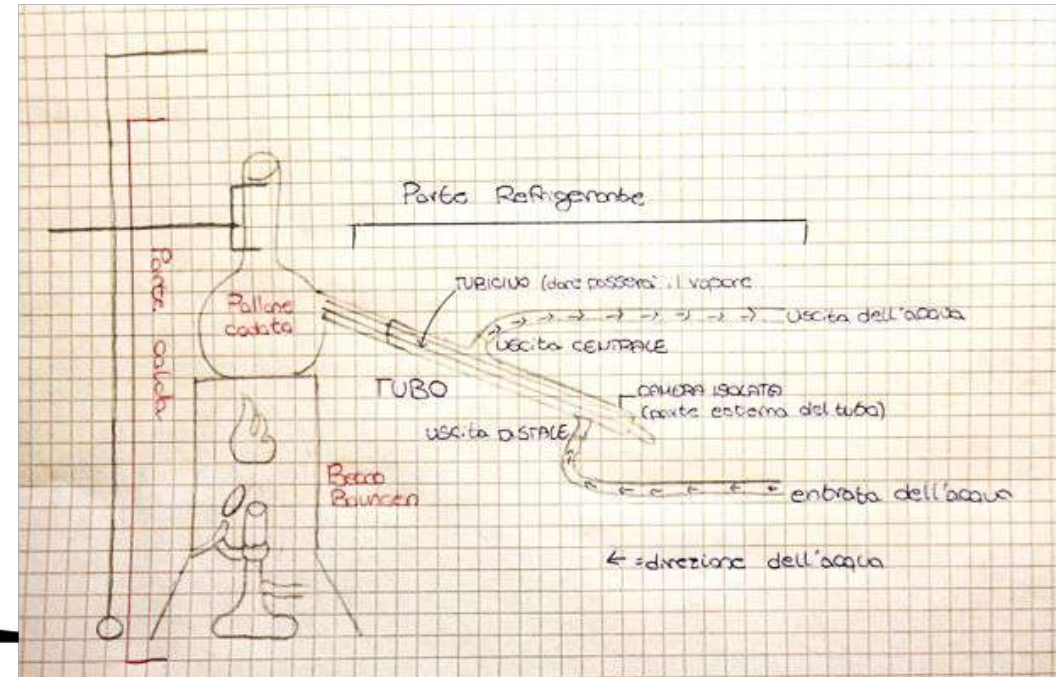 Parte Refrigerante
Parte calda
Pallone
codato
TUBICINO (dove passerà il vapore
uscita dell'acqua
USCita CENTRALE
TUBO
CAMERA ISOLATA
(parte esterna del tubo)
USCita DISTALE
Becco
Bauncen
entrata dell'acqua
← =direzione dell'acqua